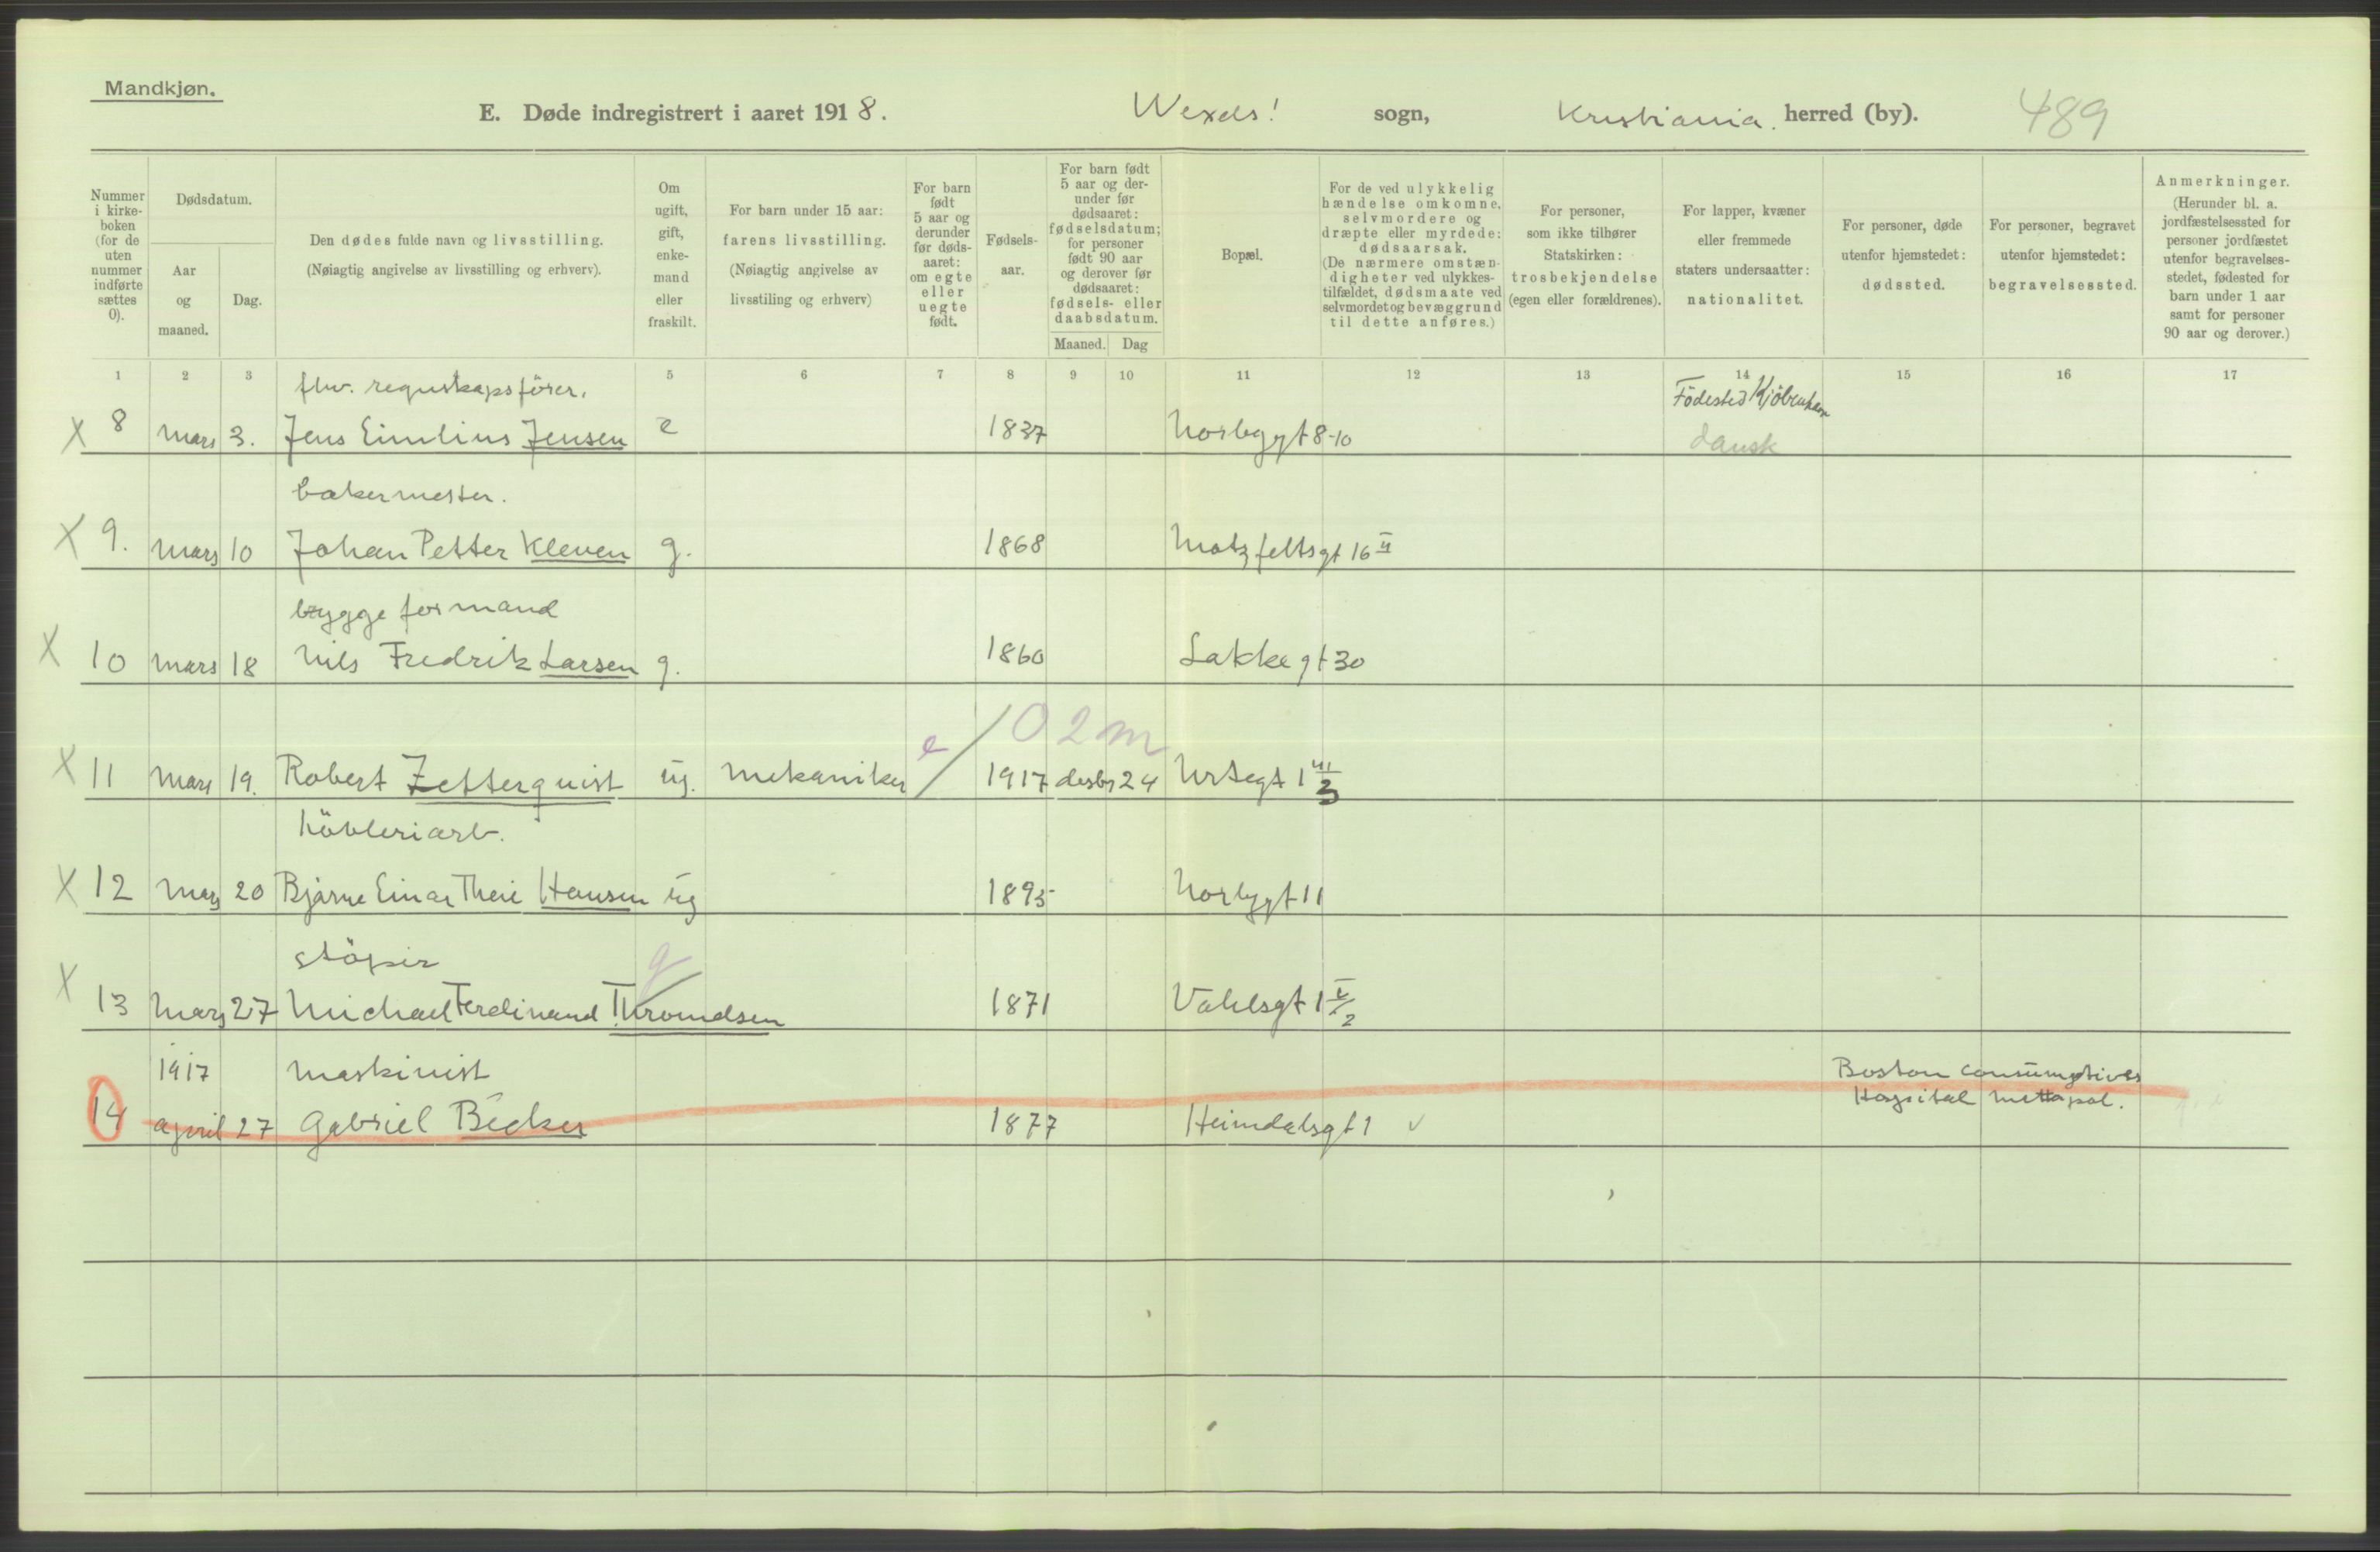 Mandkjøn.
E. Døde indregistrert i aaret 1918. Wexels! sogn, Kristiania. herred (by). 489
Nummer i kirke- boken (for de uten nummer indførte sættes 0).
Dødsdatum.
Aar og maaned.
Dag.
Den dødes fulde navn og livsstilling.
(Nøiagtig angivelse av livsstilling og erhverv).
Om ugift, gift, enke- mand eller fraskilt.
For barn under 15 aar: farens livsstilling. (Nøiagtig angivelse av livsstiling og erhverv)
For barn født 5 aar og derunder før døds- aaret: om egte eller uegte født.
Fødsels- aar.
For barn født 5 aar og der- under før dødsaaret: fødselsdatum; for personer født 90 aar og derover før dødsaaret: fødsels- eller daabsdatum.
Maaned. Dag
Bopæl.
For de ved ulykkelig hændelse omkomne, selvmordere og dræpte eller myrdede: dødsaarsak. (De nærmere omstæn- digheter ved ulykkes- tilfældet, dødsmaate ved selvmordet og bevæggrund til dette anføres.)
For personer, som ikke tilhører Statskirken: trosbekjendelse (egen eller forældrenes).
For lapper, kvæner eller fremmede staters undersaatter: nationalitet.
For personer, døde utenfor hjemstedet: dødssted.
For personer, begravet utenfor hjemstedet: begravelsessted.
Anmerkninger. (Herunder bl. a. jordfæstelsessted for personer jordfæstet utenfor begravelses- stedet, fødested for barn under 1 aar samt for personer 90 aar og derover.)
1 2 3 5 6 7 8 9 10 11 12 13 14 15 16 17
fhv. regnskapsfører. Födested Kjöbenhavn
X 8 mars 3. Jens Eimlius Jensen e 1837 Norbygt 8-10 dansk
bakermester.
X 9. mars 10 Johan Petter Kleven g. 1868 Motzfeltsgt 16 II
bryggeformand
X 10 mars 18 Nils Fredrik Larsen g. 1860 Lakkegt 30
e / 0 2 m
X 11 mars 19. Robert Zetterquist ug. mekaniker 1917 desbr 24 Urtegt 1 III/3
hövleriarb.
X 12 mars 20 Bjarne Einar Hansen ug 1895 Norbygt 11
stöper g
X 13 mars 27 Michael Ferdinand Throndsen 1871 Vahlsgt 1 V/2
1917 maskinist Boston consumptives
14 april 27 Gabriel Becker 1877 Heimdalsgt 1 ✓ Hospital